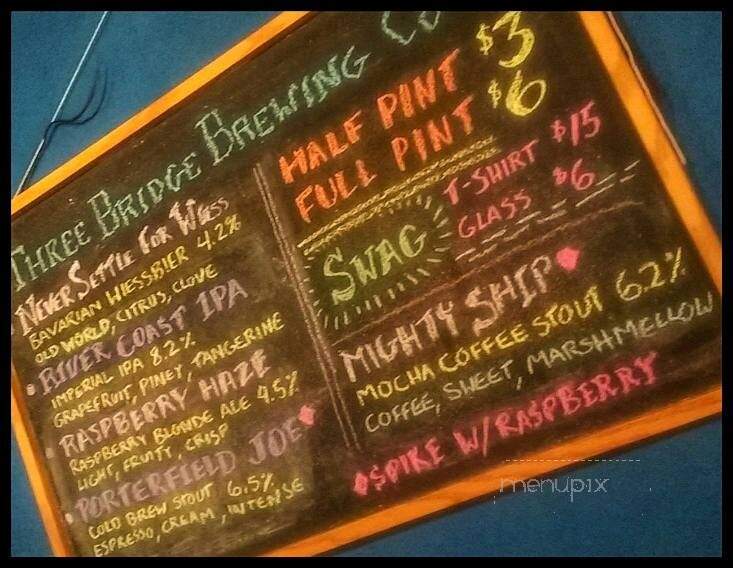 Three Bridge Brewing Co
Never Settle For Wiess
Bavarian Wiessbier 4.2%
Old World, Citrus, Clove
River Coast IPA
Imperial IPA 8.2%
Grapefruit, Piney, Tangerine
Raspberry Haze
Raspberry Blonde Ale 4.5%
Light, Fruity, Crisp
Porterfield Joe
Cold Brew Stout 6.5%
Espresso, Cream, Intense
Half Pint $3
Full Pint $6
Swag
T-Shirt $15
Glass $6
Mighty Ship
Mocha Coffee Stout 6.2%
Coffee, Sweet, Marshmellow
Spire w/Raspberry
menupix